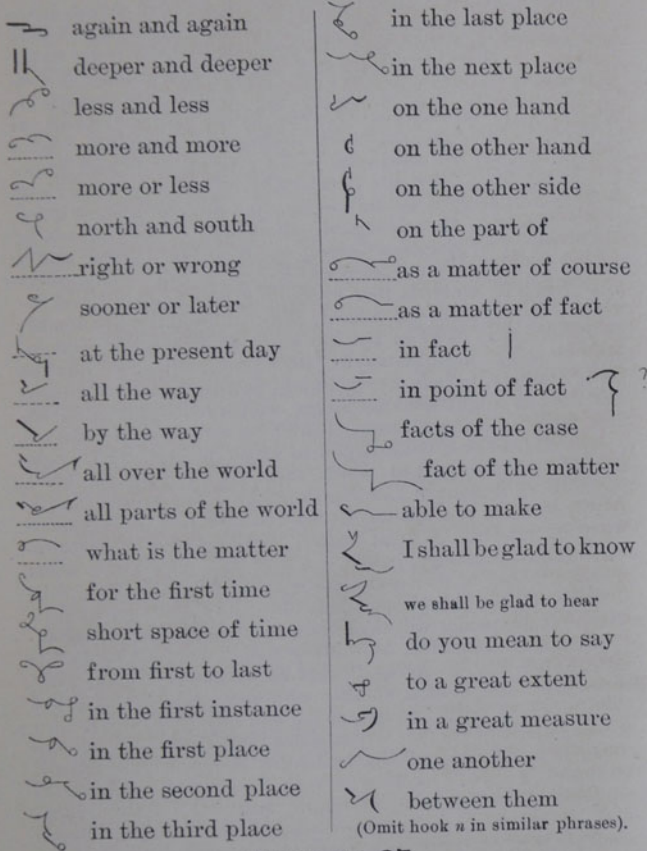 again and again
deeper and deeper
less and less
more and more
more or less
north and south
right or wrong
sooner or later
at the present day
all the way
by the way
all over the world
all parts of the world
what is the matter
for the first time
short space of time
from first to last
in the first instance
in the first place
in the second place
in the third place
in the last place
in the next place
on the one hand
on the other hand
on the other side
on the part of
as a matter of course
as a matter of fact
in fact
in point of fact ?
facts of the case
fact of the matter
able to make
I shall be glad to know
we shall be glad to hear
do you mean to say
to a great extent
in a great measure
one another
between them
(Omit hook n in similar phrases).